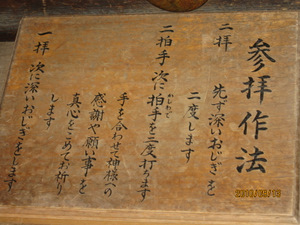 参拝作法
二拝
先ず深いおじぎを
二度します
二拍手 次に拍手を二度打ちます
かしわで
手を合わせて神様への
感謝や願い事を
真心をこめてお祈り
します
一拝 次に深いおじぎをします